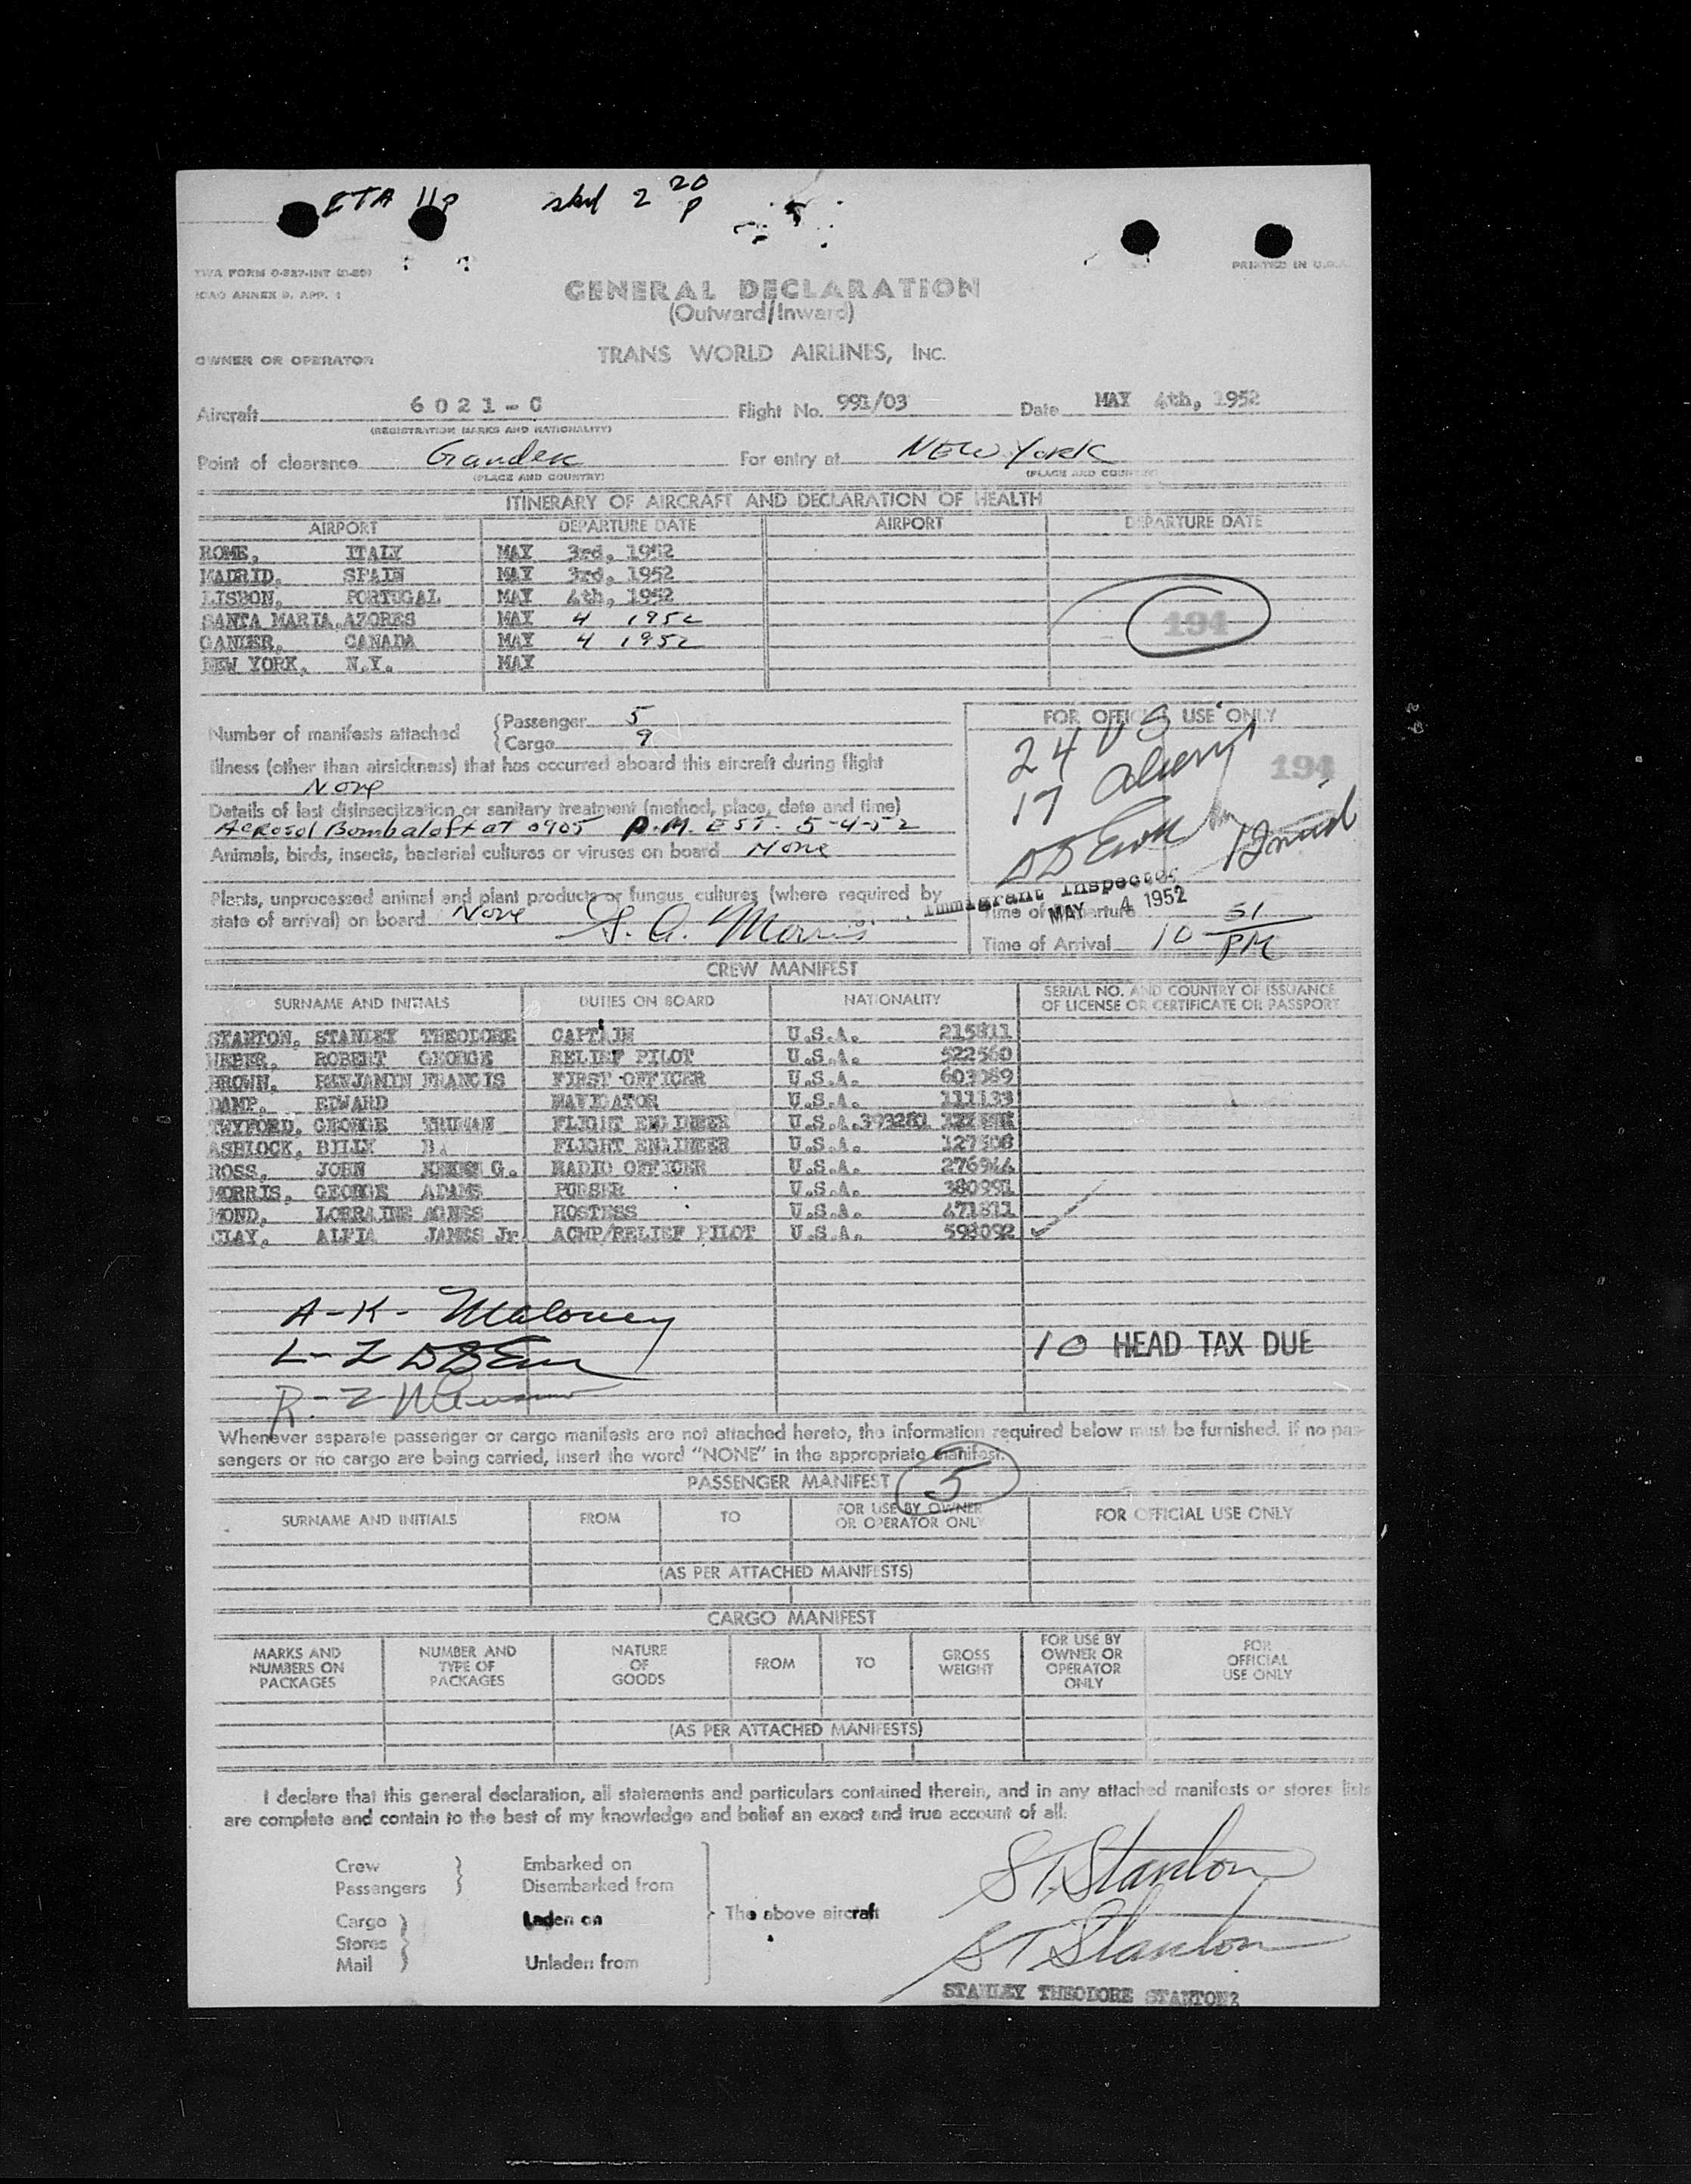 ETA 11P skd 2 20 P
TWA FORM O-827-INT
ICAO ANNEX 9, APP. 1
PRINTED IN U.S.A.
GENERAL DECLARATION
(Outward/Inward)
OWNER OR OPERATOR TRANS WORLD AIRLINES, INC.
Aircraft 6021-C Flight No. 991/03 Date MAY 4th, 1952
(REGISTRATION MARKS AND NATIONALITY)
Point of clearance Gander For entry at NEW YORK
(PLACE AND COUNTRY) (PLACE AND COUNTRY)
ITINERARY OF AIRCRAFT AND DECLARATION OF HEALTH
AIRPORT DEPARTURE DATE AIRPORT DEPARTURE DATE
ROME, ITALY MAY 3rd, 1952
MADRID, SPAIN MAY 3rd, 1952
LISBON, PORTUGAL MAY 4th, 1952
SANTA MARIA, AZORES MAY 4 1952 194
GANDER, CANADA MAY 4 1952
NEW YORK, N.Y. MAY
Number of manifests attached Passenger 5
Cargo 9
FOR OFFICIAL USE ONLY
24 US
17 Aliens
194
Illness (other than airsickness) that has occurred aboard this aircraft during flight
None
Details of last disinsectization or sanitary treatment (method, place, date and time)
Aerosol Bomb aloft at 0905 P.M. EST. 5-4-52
Animals, birds, insects, bacterial cultures or viruses on board None
Immigrant Inspector
MAY 4 1952
Plants, unprocessed animal and plant products or fungus cultures (where required by
state of arrival) on board None G. A. Morris
Time of Departure
Time of Arrival 10 51 PM
CREW MANIFEST
SURNAME AND INITIALS DUTIES ON BOARD NATIONALITY SERIAL NO. AND COUNTRY OF ISSUANCE
OF LICENSE OR CERTIFICATE OR PASSPORT
STANTON, STANLEY THEODORE CAPTAIN U.S.A. 215811
WEBER, ROBERT GEORGE RELIEF PILOT U.S.A. 522560
BROWN, BENJAMIN FRANCIS FIRST OFFICER U.S.A. 603089
DAMP, EDWARD NAVIGATOR U.S.A. 111133
TWYFORD, GEORGE TRUMAN FLIGHT ENGINEER U.S.A. 393281
ASHLOCK, BILLY B FLIGHT ENGINEER U.S.A. 127308
ROSS, JOHN G. RADIO OFFICER U.S.A. 276944
MORRIS, GEORGE ADAMS PURSER U.S.A. 380991
MOND, LORRAINE AGNES HOSTESS U.S.A. 471811
CLAY, ALFIA JAMES Jr. ACMP/RELIEF PILOT U.S.A. 598092
A-K- Maloney
L-Z
10 HEAD TAX DUE
R-Z
Whenever separate passenger or cargo manifests are not attached hereto, the information required below must be furnished. If no pas-
sengers or no cargo are being carried, insert the word "NONE" in the appropriate manifest.
PASSENGER MANIFEST 5
SURNAME AND INITIALS FROM TO FOR USE BY OWNER
OR OPERATOR ONLY FOR OFFICIAL USE ONLY
(AS PER ATTACHED MANIFESTS)
CARGO MANIFEST
MARKS AND
NUMBERS ON
PACKAGES
NUMBER AND
TYPE OF
PACKAGES
NATURE
OF
GOODS
FROM
TO
GROSS
WEIGHT
FOR USE BY
OWNER OR
OPERATOR
ONLY
FOR
OFFICIAL
USE ONLY
(AS PER ATTACHED MANIFESTS)
I declare that this general declaration, all statements and particulars contained therein, and in any attached manifests or stores lists
are complete and contain to the best of my knowledge and belief an exact and true account of all:
Crew Embarked on
Passengers Disembarked from
Cargo Laden on The above aircraft
Stores
Mail Unladen from
S T. Stanton
S T Stanton
STANLEY THEODORE STANTON